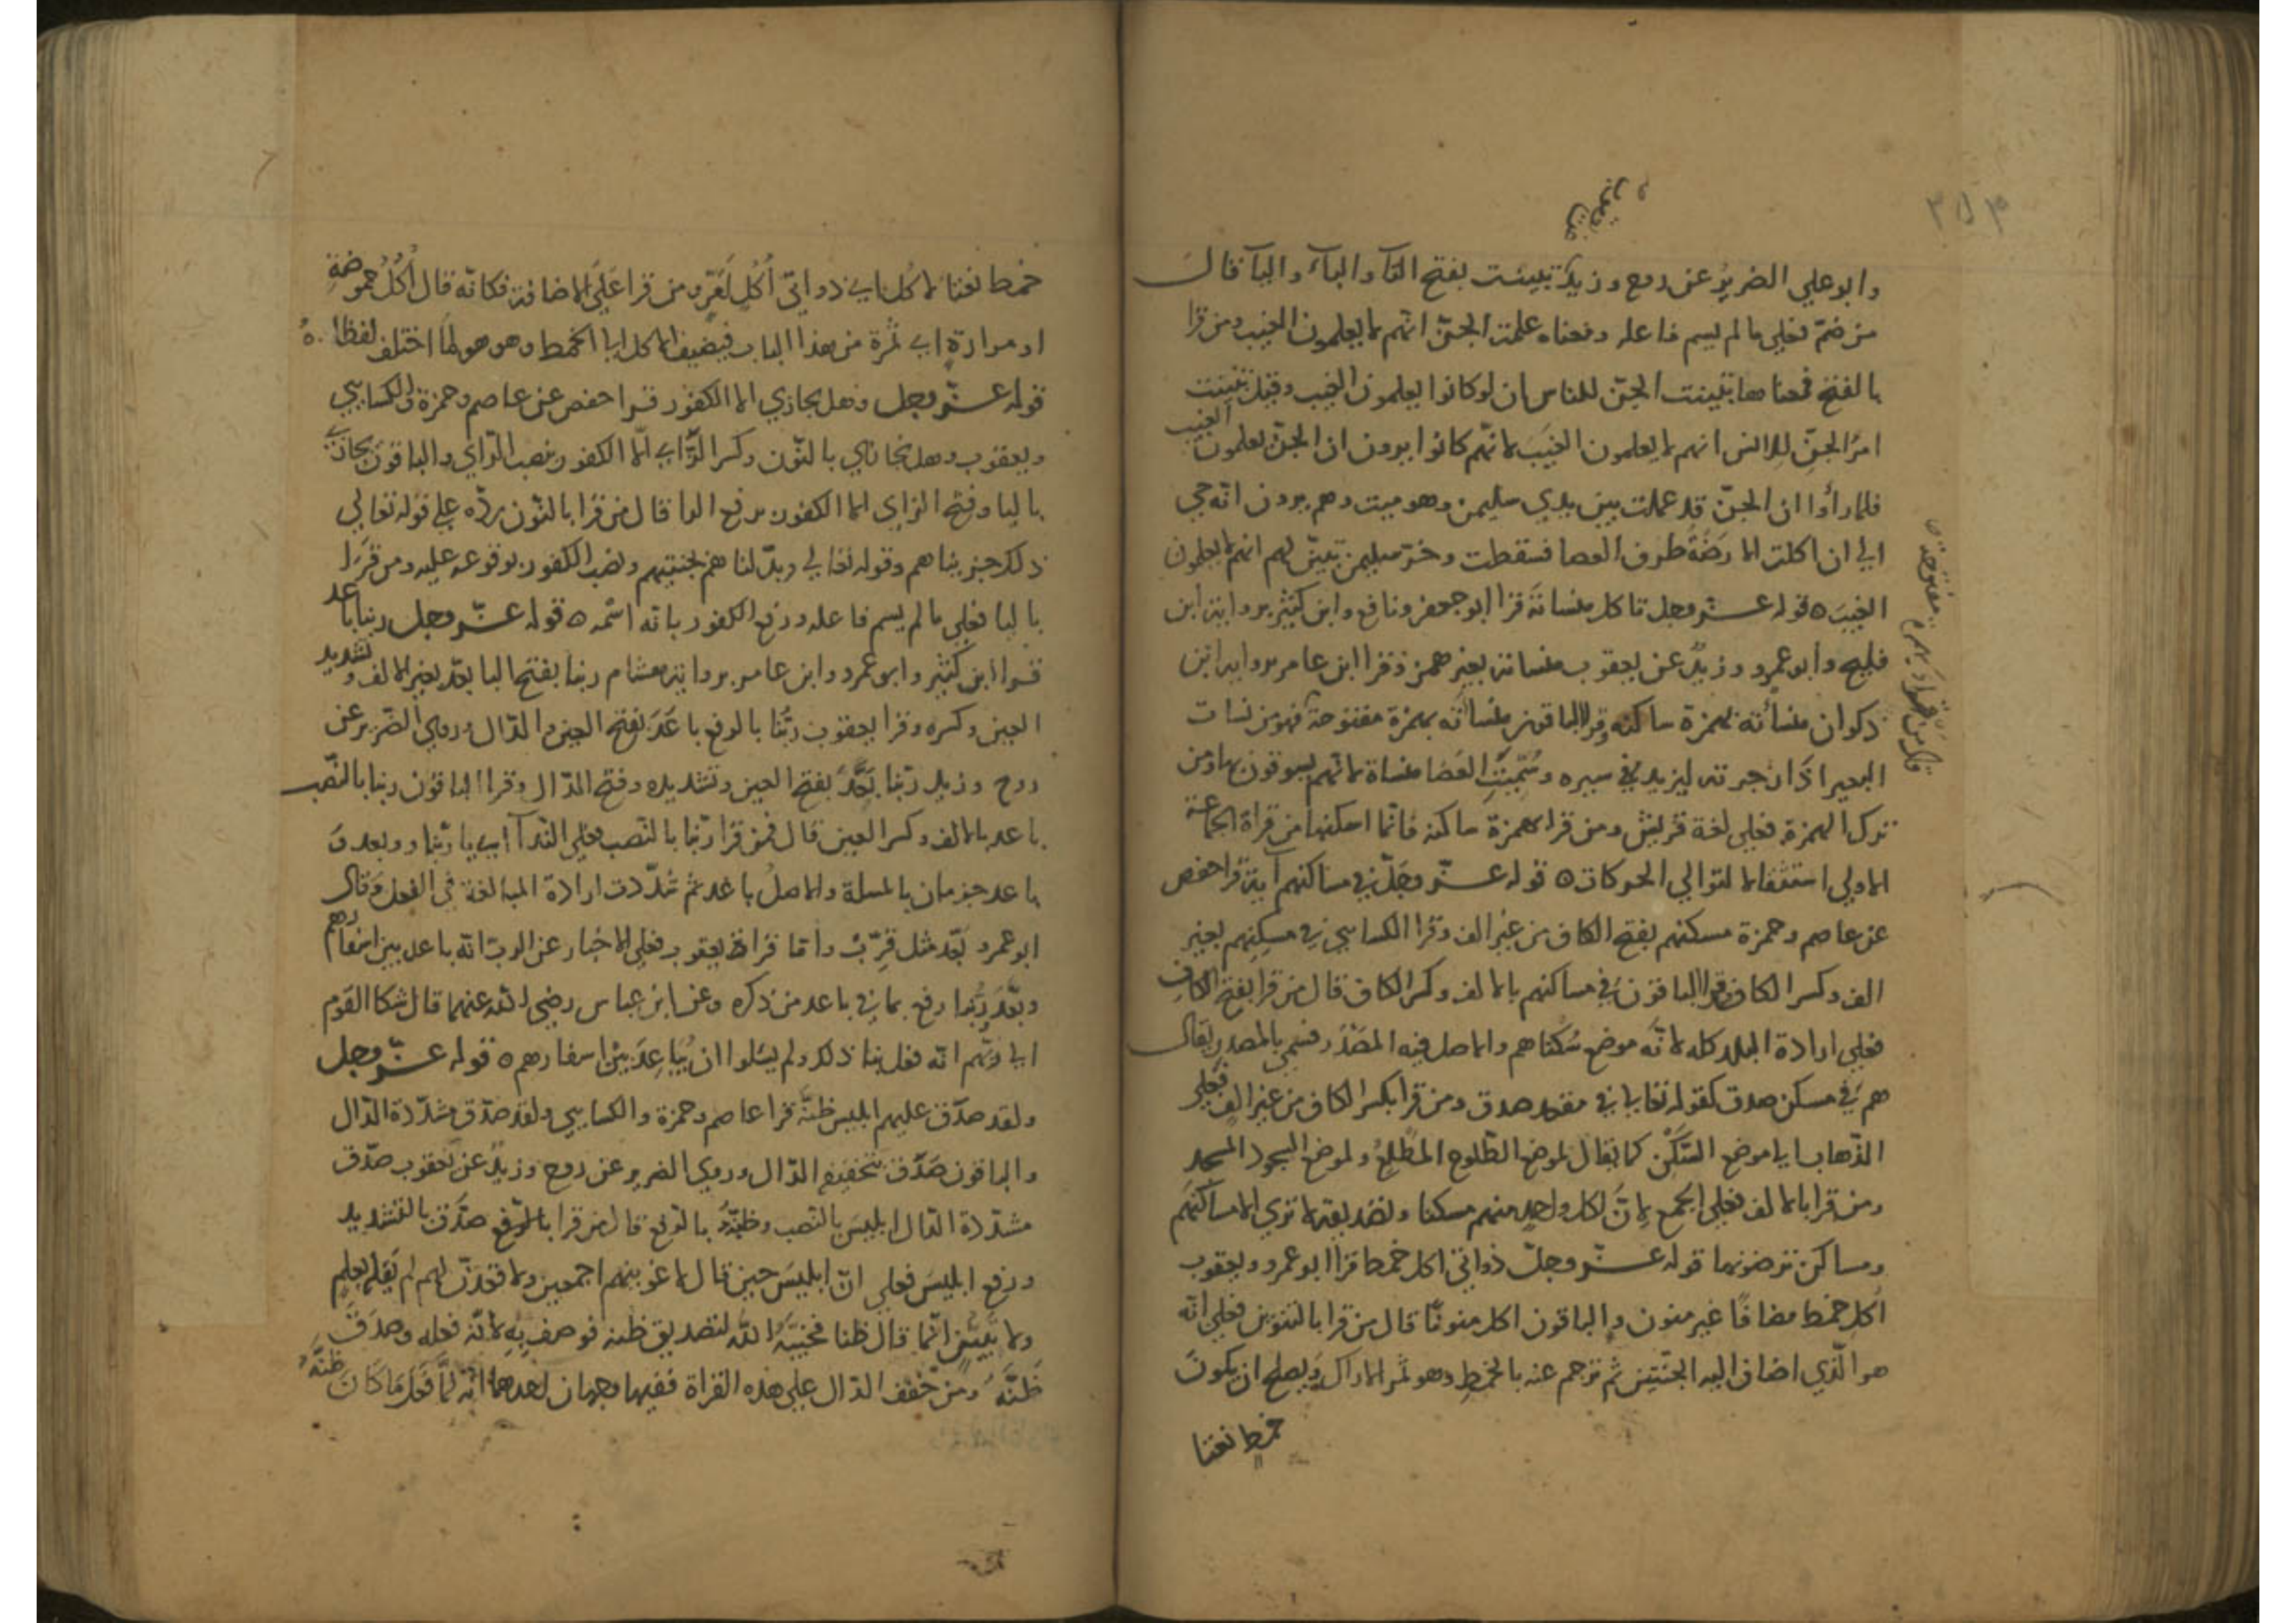 وابو علي الضرير عن روح وزيد تبينت بفتح التآ والبآ واليآ قال
من ضم فعلى ما لم يسم فاعله ومعناه علمت الجنّ انهم لا يعلمون الغيب ومن قرا
بالفتح فمعناها تبينت الجنّ للناس ان لو كانوا يعلمون الغيب وقيل تبينت
امرُ الجنّ للانس انهم لا يعلمون الغيبَ لانهم كانوا يرون ان الجنّ يعلمون الغيب
فلما راوا ان الجنّ قد عملت بين يدي سليمن وهو ميت وهم يرون انه حي
الى ان اكلت الارضَةُ طرف العصا فسقطت وخرّ سليمن تبيّن لهم انهم لا يعلمون
الغيبَ ه قوله عزّ وجل تاكل منساته قرا ابو جعفر ونافع وابن كثير برواية ابن
فليح وابو عمرو وزيدٌ عن يعقوب منساته بغير همز وقرا ابن عامر برواية ابن
ذكوان منسأته بهمزة ساكنه وقرا الباقون منسأته بهمزة مفتوحة فهو من نسات
البعير اذا زجرته ليزيد في سيره وسُمّيتِ العَصَا منساة لانهم يسوقون بها ومن
ترك الهمزة فعلى لغة قريش ومن قرا بهمزة ساكنه فانما اسكنها من قراة الجماعة
الاولى استثقالا لتوالي الحركات ه قوله عزّ وجلّ في مساكنهم آية قرا حفص
عن عاصم وحمزة مسكنهم بفتح الكاف من غير الف وقرا الكسايي في مسكِنِهم بغير
الف وكسر الكاف وقرا الباقون في مساكنهم بالالف وكسر الكاف قال من قرا بفتح الكاف
فعلى ارادة البلد كله لانّه موضع سُكناهم والاصل فيه المصْدَر فسمي بالمصدر يقال
هم في مسكن صدق كقوله تعالى في مقعد صدق ومن قرا بكسر الكاف من غير الف فعلى
الذّهاب الى موضع السَّكَن كما يقال لموضع الطّلوع المطْلِعُ ولموضع السجود المسجد
ومن قرا بالالف فعلى الجمع لانّ لكل واحدٍ منهم مسكنا وتصديقه لا ترى الا مساكنهم
ومساكن ترضونها قوله عزّ وجلّ ذواتي اكل خمط قرا ابو عمرو ويعقوب
اُكُلِ خمط مضافًا غير منون والباقون اكل منونًا قال من قرا بالتنوين فعلى انه
هو الّذي اضاف اليه الجنّتين ثم ترجم عنه بالخمط وهو ثمر الاراك ويصلح ان يكون
خمط نعتا
خمط نعتا لاكل اي ذواتي اُكُلٍ لعرّ ومن قرا عَلَى الاضافة فكانّه قال اُكُلُ حموضةِ
او مرارةٍ اي ثمرة من هذا الباب فيضيف الاكل الى الخمط وهو هو لمّا اختلف لفظا ه
قوله عزّ وجل وهل يجازي الا الكفور قرا حفص عن عاصم وحمزة والكسايي
ويعقوب وهل نجازي بالنّون وكسر الزّاي الّا الكفور بنصب الرّاي والباقون يجازى
باليا وفتح الزاي الا الكفور برفع الرا قال من قرا بالنّون ردّه على قوله تعالي
ذلك جزيناهم وقوله تعالي وبدّلناهم بجنتيهم ونصب الكفور بوقوعه عليه ومن قرا
باليا فعلى ما لم يسم فاعله ورفع الكفور بانه اسْمه ه قوله عزّ وجل ربنا باعد
قرا ابن كثير وابو عمرو وابن عامر برواية هشام ربنا بفتح البا بعّد بغير الالف وتشديد
العين وكسره وقرا يعقوب ربُّنا بالرفع باعَدَ بفتح العين والدّال وروي الضّرير عن
روح وزيد ربّنا بَعَّدَ بفتح العين وتشديده وفتح الدّال وقرا الباقون ربنا بالنّصب
باعد بالالف وكسر العين قال فمن قرا ربّنا بالنّصب فعلى النّدآ اي يا ربّنا وبعد و
باعد جزمان بالمسلة والاصلُ باعد ثم شدّدت ارادة المبالغة في الفعل وقال
ابو عمرو بَعّد مثل قرِّبْ واما قراة يعقوب فعلى الاخبار عن الربّ انه باعد بين اسفارهم
وبعَّدَ ربُّنا رفع بما في باعد من ذكره وعن ابن عباس رضي الله عنهما قال شكا القوم
الى ربّهم انه فعل بنا ذلك ولم يسَلوا ان يُبَاعِدَ بَيْنَ اسفارهم ه قوله عزّ وجل
ولقد صدّق عليهم ابليس ظنّه قرا عاصم وحمزة والكسايي ولقد صدّق مشدّدة الدّال
والباقون صَدَق بتخفيف الدّال وروي الضرير عن روح وزيدٌ عن يعقوب صدّق
مشدّدة الدّال ابليسَ بالنّصب وظنُّهُ بالرّفع قال من قرا بالرّفع صدّق بالتشديد
ورفع ابليسَ فعلى انّ ابليسَ حين قال لاغوينهم اجمعين ولاقعدنّ لهم لم يقله بعلمٍ
ولا تبيّنٍ انّما قال ظنا فخيّبه الله لتصديق ظنه فوصف بِهِ لانّه فعله وصدّق
ظَنَّهُ ومن خفف الدّال على هذه القراة ففيها وجهان احدهما انّه لمّا فَعَلَ مَا كَانَ ظنَّهُ